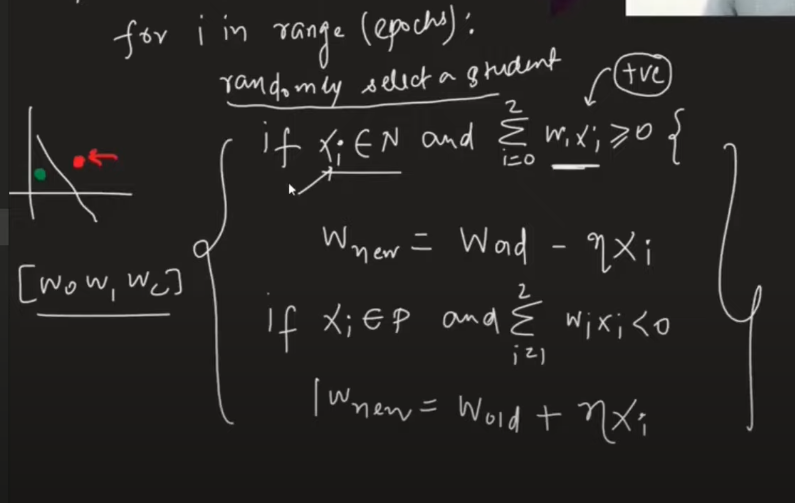 for i in range (epochs):
randomly select a student
+ve
if Xi ∈ N and 2 Σ i=0 wixi ≥ 0 {
Wnew = Wold - ηXi
[W0 W1 W2]
if Xi ∈ P and 2 Σ i=1 wixi < 0
Wnew = Wold + ηXi